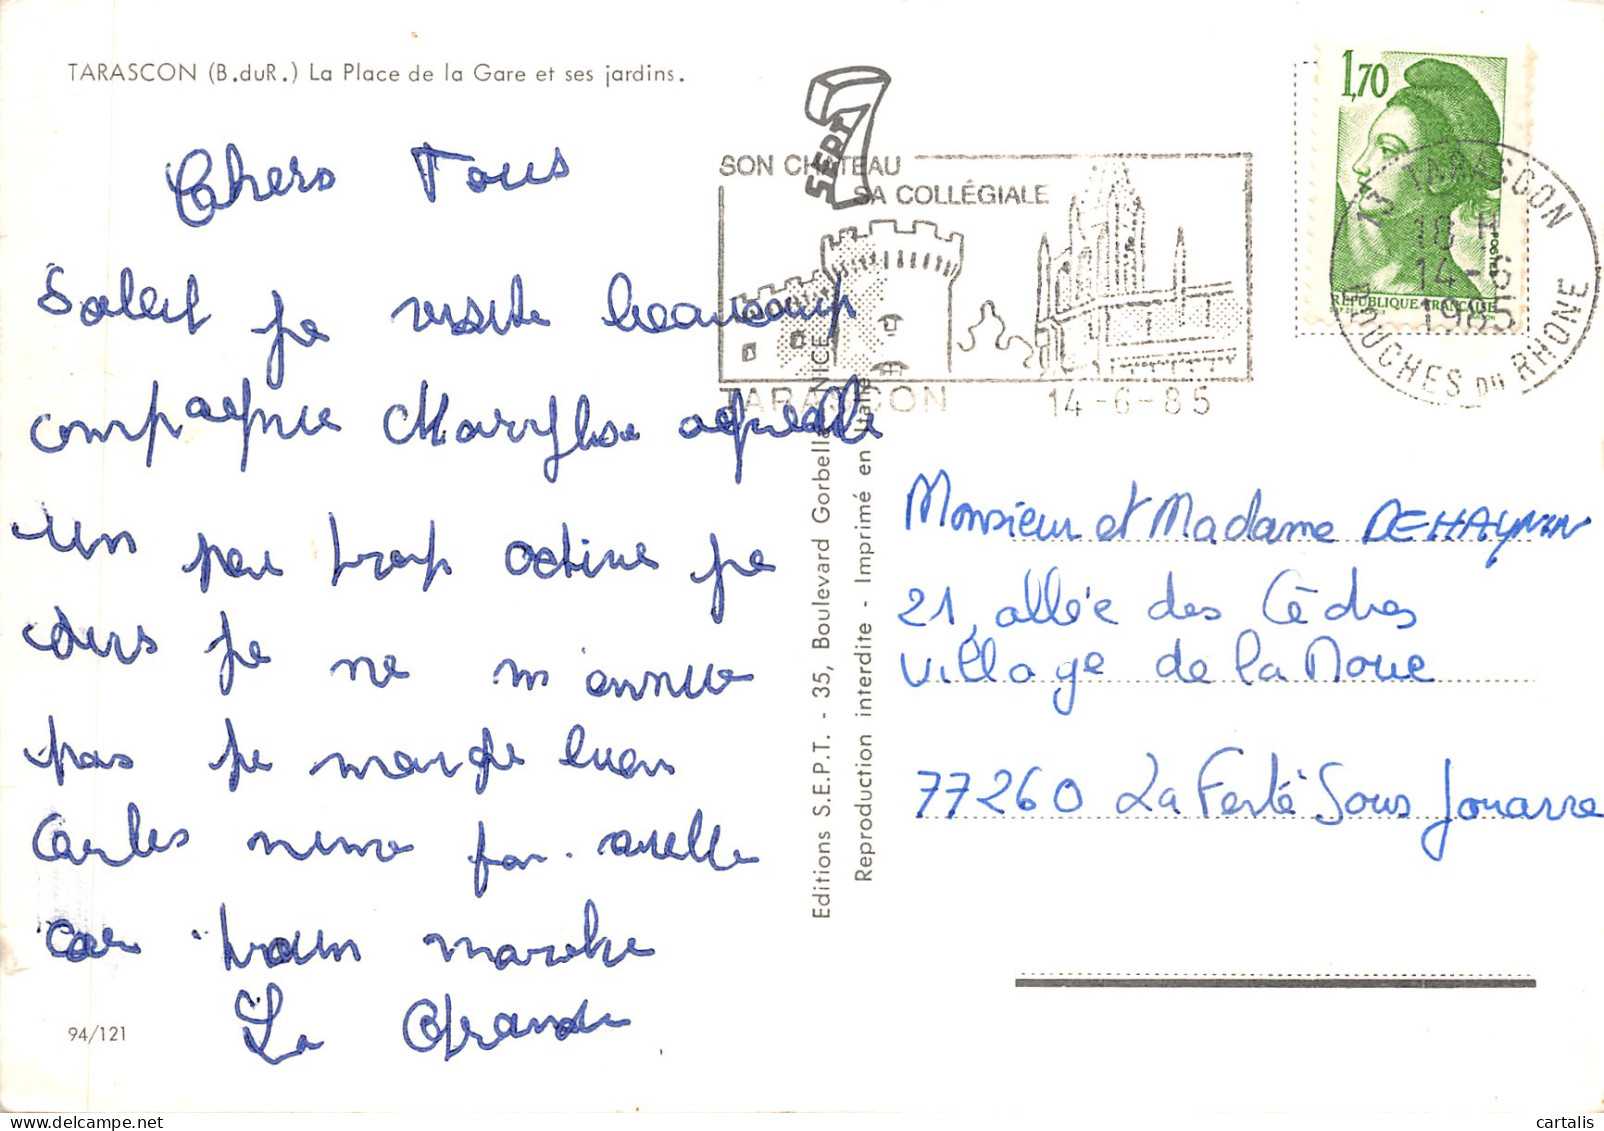 TARASCON (B.duR.) La Place de la Gare et ses jardins.
Chers Tous
Soleil je visite beaucoup
compagnie Maryse
un peu trop active je
cours je ne m'ennuie
pas je mange
car train marche
La Grande
94/121
Editions S.E.P.T. - 35, Boulevard Gorbella NICE
Reproduction interdite - Imprimé en Italie
SEPT
SON CHATEAU
SA COLLÉGIALE
TARASCON
14-6-85
1,70
POSTES
REPUBLIQUE FRANÇAISE
13 TARASCON
18 H
14-6
1985
BOUCHES DU RHONE
Monsieur et Madame DEHAYNIN
21, allée des Cèdres
Village de la Noue
77260 La Ferté Sous Jouarre
cartalis